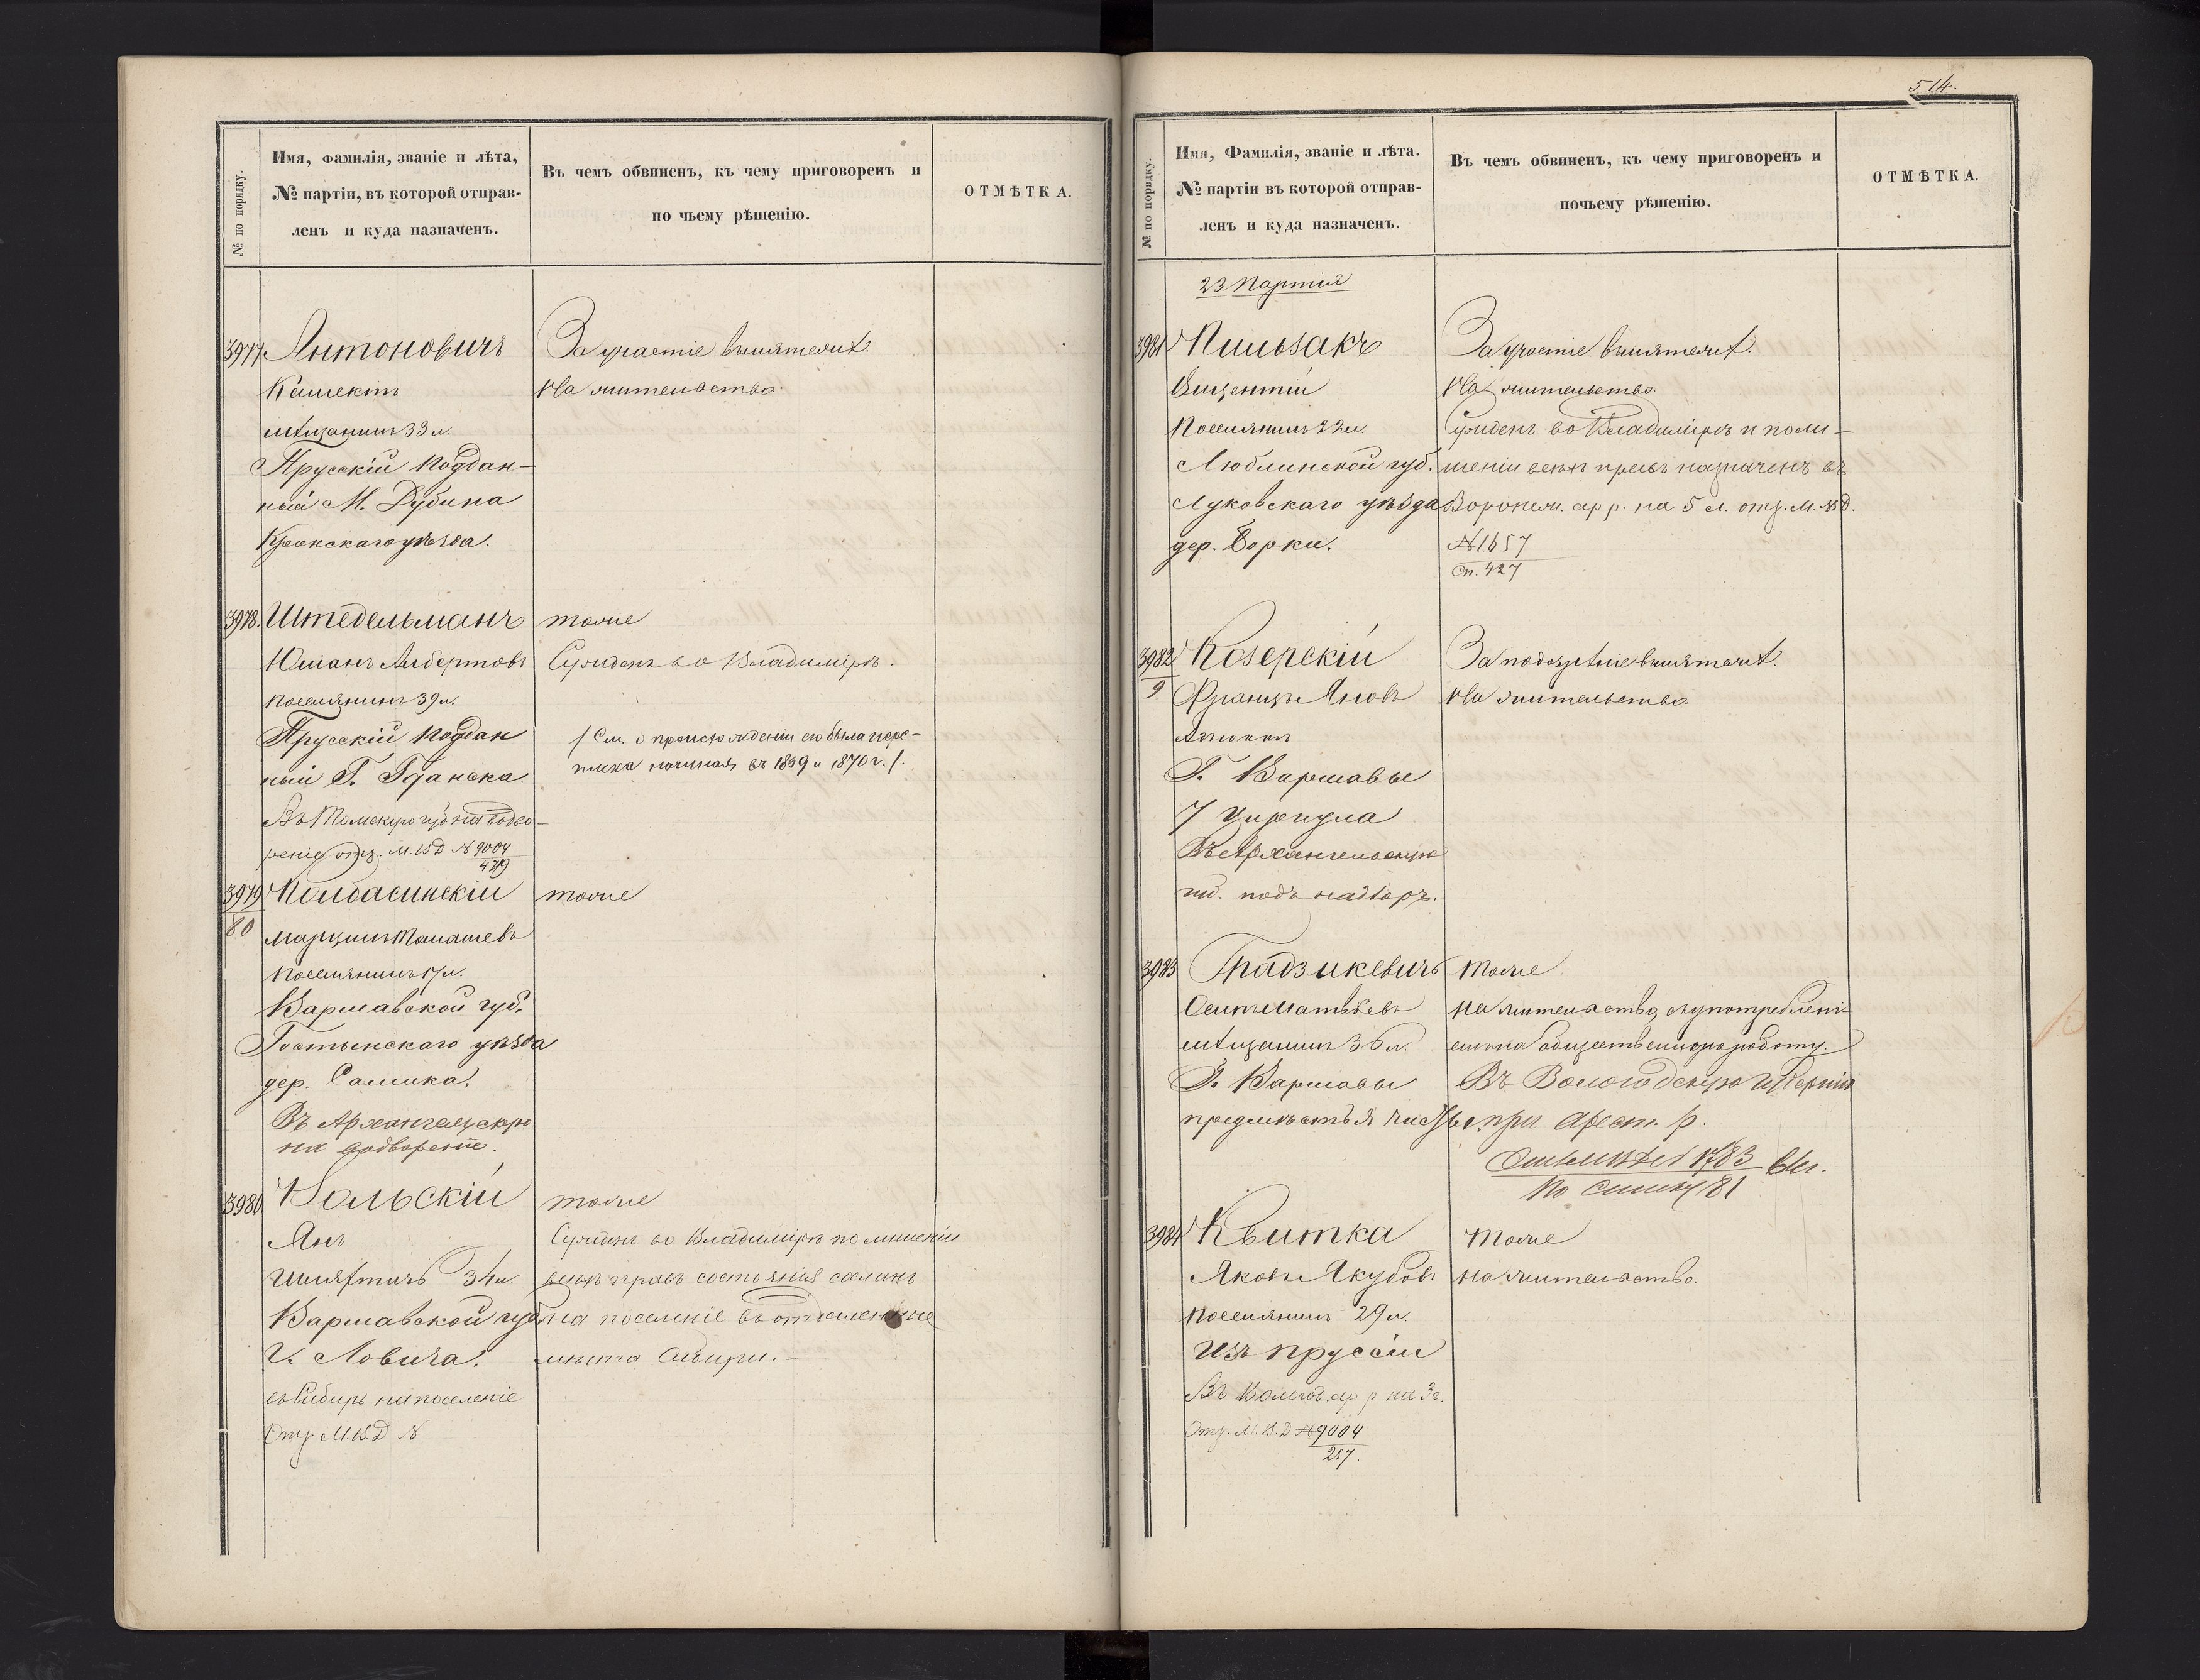 № по порядку.
Имя, фамилія, званіе и лѣта,
№ партіи, въ которой отправ-
ленъ и куда назначенъ.
Въ чемъ обвиненъ, къ чему приговоренъ и
по чьему рѣшенію.
ОТМѢТКА.
3977
Антоновичъ
За участіе въ мятежѣ.
На жительство.
мѣщанинъ 33 л.
Прусскій поддан-
ный М. Дубина
уѣзда.
3978.
Штедельманъ
тоже
Юліанъ Альбертовъ
Сужденъ во Владимірѣ.
поселянинъ 39 л.
Прусскій поддан
ный Г. Гданска.
/ См. о происхожденіи его была пере-
писка начиная въ 1869 и 1870 г. /.
Въ Томскую губ на водво-
реніе отз. М.В.Д №9004
479
3979
80
Колбасинскій
тоже
Марцинъ Томашевъ
поселянинъ 17 л.
Варшавской губ.
Гостынскаго уѣзда
дер. Санника.
Въ Архангельскую
на водвореніе.
3980
Вольскій
тоже
Янъ
Сужденъ во Владимірѣ по лишеніи
шляхтичъ 34 л.
всѣхъ правъ состоянія сосланъ
Варшавской губ.
на поселеніе въ отдаленные
Г. Ловича.
мѣста Сибири.
въ Сибирь на поселеніе
Отз. М.В.Д №
514.
№ по порядку.
Имя, Фамилія, званіе и лѣта.
№ партіи въ которой отправ-
ленъ и куда назначенъ.
Въ чемъ обвиненъ, къ чему приговоренъ и
почьему рѣшенію.
ОТМѢТКА.
23 Партія
3981
Пильзакъ
За участіе въ мятежѣ.
Винцентій
На жительство.
Поселянинъ 22 л.
Сужденъ во Владимірѣ и по ли-
Люблинской губ.
шеніи всѣхъ правъ назначенъ въ
Луковскаго уѣзда
Воронеж. ар р. на 5 л. отз. М.В.Д.
дер. Борки.
№1657
Сп. 427
3982
9
Козерскій
За подозрѣніе въ мятежѣ.
Францъ Яновъ
На жительство.
Г. Варшавы
7 Циркула
Въ Архангельскую
губ. подъ надзоръ.
3983
Градзикевичъ
тоже
Осипъ Матвѣевъ
На жительство, съ употребленіемъ
мѣщанинъ 36 л.
на общественную работу.
Г. Варшавы
Въ Вологодскую губернію
предмѣстья
при арест. р.
1783
по списку 81
3984
Квитка
тоже
Яковъ Якубовъ
на жительство.
Поселянинъ 29 л.
Изъ Пруссіи
Въ Вологод. ар р на 3 г.
Отз. М.В.Д №9004
257.